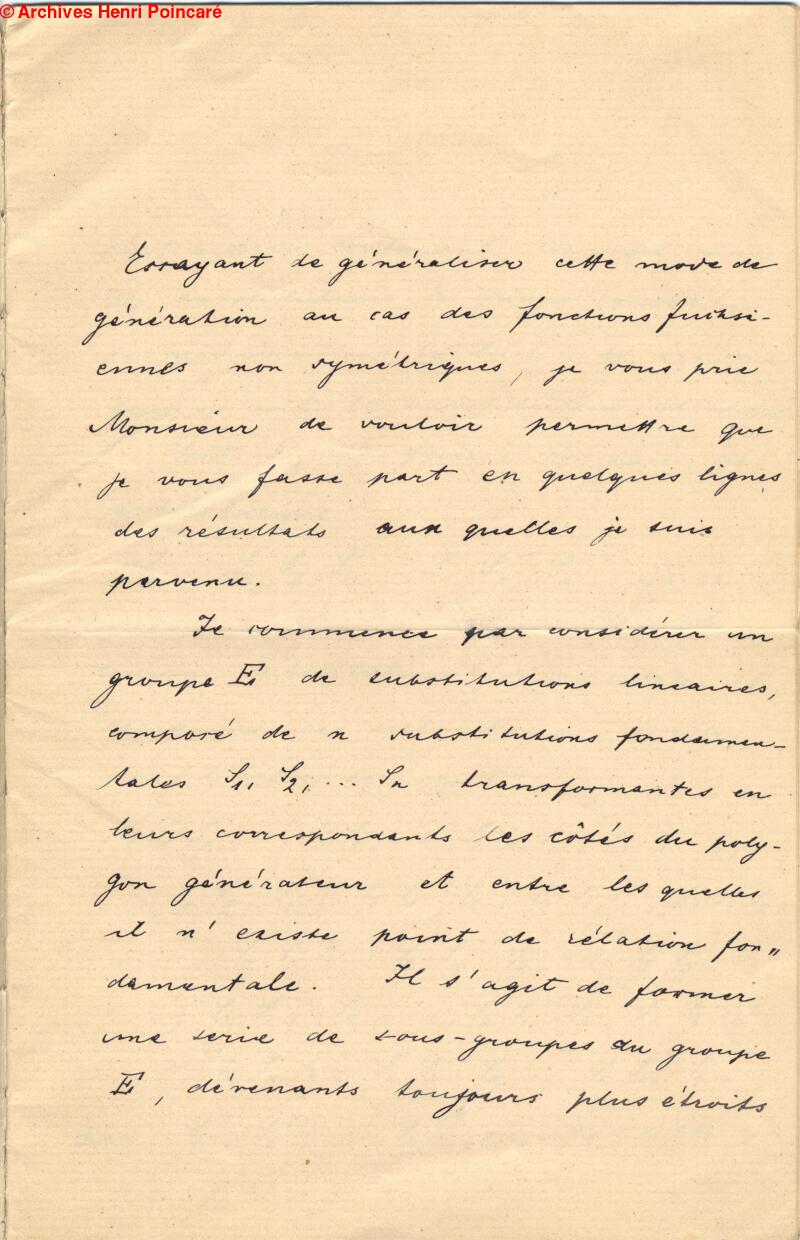 © Archives Henri Poincaré
Essayant de généraliser cette mode de
génération au cas des fonctions fuchsi-
ennes non symétriques, je vous prie
Monsieur de vouloir permettre que
je vous fasse part en quelques lignes
des résultats aux quelles je suis
parvenu.
Je commence par considérer un
groupe E de substitutions lineaires,
composé de n substitutions fondamen-
tales S1, S2, ... Sn transformantes en
leurs correspondants les côtés du poly-
gon générateur et entre les quelles
il n'existe point de rélation fon"
damentale. Il s'agit de former
une serie de sous-groupes du groupe
E, dévenants toujours plus étroits